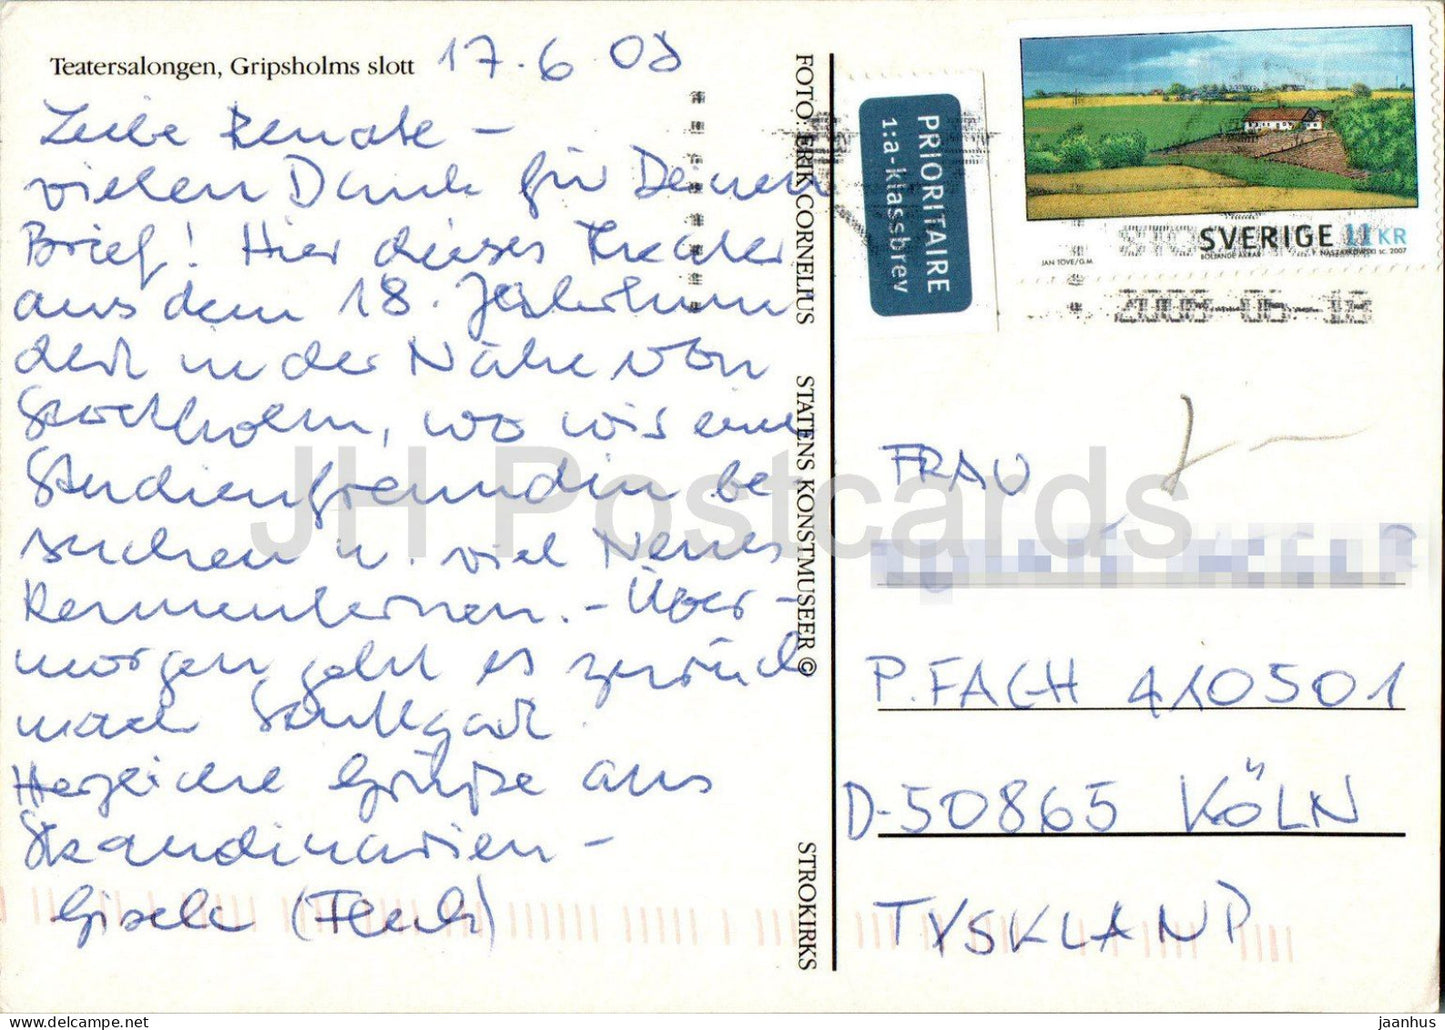 Teatersalongen, Gripsholms slott 17.6 08
Liebe Renate –
vielen Dank für Deinen
Brief! Hier dieses Theater
aus dem 18. Jahrhun
dert in der Nähe von
Stockholm, wo wir eine
Studienfreundin be-
suchen u. viel Neues
kennenlernen. – Über-
morgen geht es zurück
nach Stuttgart.
Herzliche Grüße aus
Skandinavien –
Gisela
FOTO: ERIK CORNELIUS STATENS KONSTMUSEER © STROKIRKS
PRIORITAIRE
1:a-klassbrev
SVERIGE 11 KR
JAN TOVE/G.M. BÖLJANDE ÅKRAR P. NASZARKOWSKI SC. 2007
2008-06-18
FRAU
P.FACH 410501
D-50865 KÖLN
TYSKLAND
JH Postcards
jaanhus